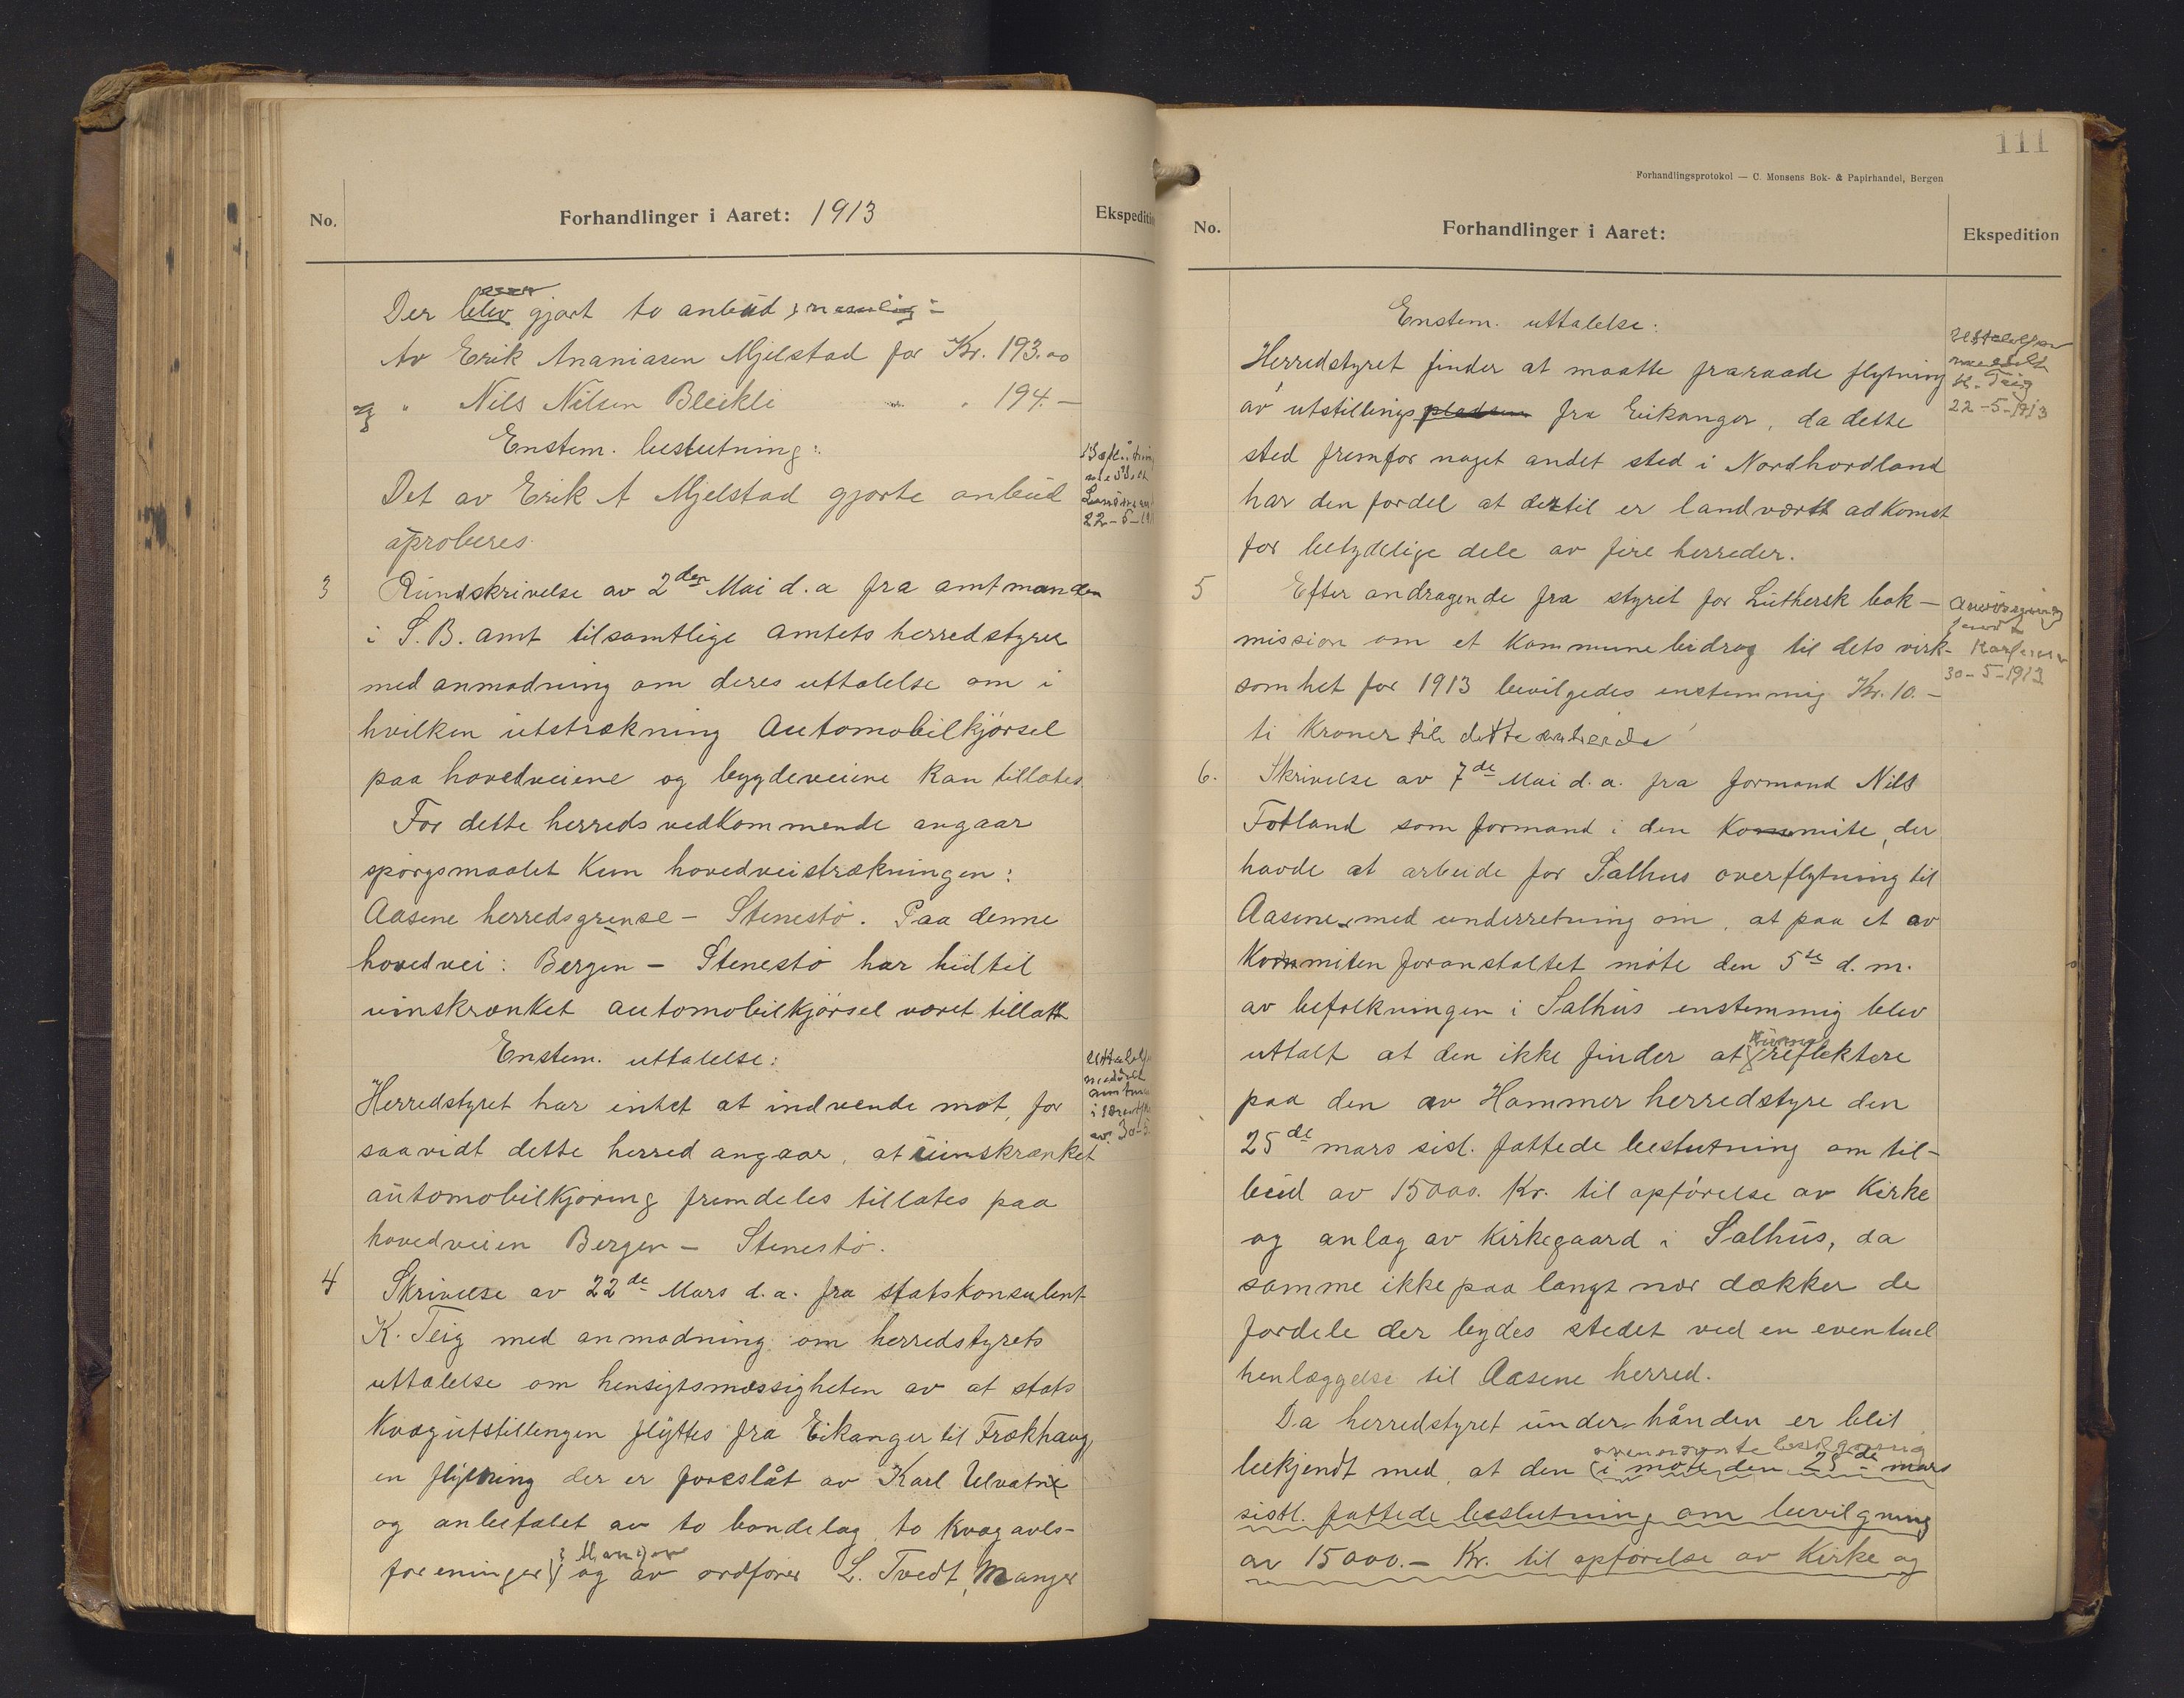 No.
Forhandlinger i Aaret: 1913
Ekspediti
Der blev gjort to anbud, nemlig:
Av Erik Ananiasen Mjelstad for Kr. 193.00
" Nils Nilsen Bleikli " 194.—
Enstem. beslutning:
Det av Erik A Mjelstad gjorte anbud
aproberes.
22-5-191
3 Rundskrivelse av 2den Mai d.a fra amtmanden
i S.B. amt til samtlige amtets herredstyrer
med anmodning om deres uttalelse om i
hvilken utstrækning Automobilkjørsel
paa hovedveiene og bygdeveiene kan tillates.
For dette herreds vedkommende angaar
spørgsmaalet kun hovedveistrækningen:
Aasene herredsgrense – Stenestø. Paa denne
hovedvei: Bergen – Stenestø har hidtil
uinskrænket automobilkjørsel været tillatt
Enstem. uttalelse:
Herredstyret har intet at indvende mot, for
saavidt dette herred angaar, at uinskrænket
automobilkjøring fremdeles tillates paa
hovedveien Bergen – Stenestø.
4 Skrivelse av 22de Mars d.a. fra statskonsulent
K. Teig med anmodning om herredstyrets
uttalelse om hensigtsmæssigheten av at stats
kvægutstillingen flyttes fra Eikanger til Frækhaug,
en flytning der er foreslåt av Karl Ulvatne
og anbefalet av to bondelag, to kvægavls-
foreninger og av ordfører L. Tvedt, Manger
111
Forhandlingsprotokol — C. Monsens Bok- & Papirhandel, Bergen
No.
Forhandlinger i Aaret:
Ekspedition
Enstem. uttalelse:
Herredstyret finder at maatte fraraade flytning
av utstillingspladsen fra Eikanger, da dette
sted fremfor noget andet sted i Nordhordland
har den fordel at dertil er landværts adkomst
for betydelige dele av fire herreder.
Uttalelsen
meddelt
K. Teig
22-5-1913
5 Efter andragende fra styret for Luthersk bok-
mission om et kommunebidrag til dets virk-
somhet for 1913 bevilgedes enstemmig Kr. 10.–
ti kroner til dette
30-5-1913
6. Skrivelse av 7de Mai d.a. fra formand Nils
Fotland som formand i den Kommite, der
havde at arbeide for Salhus overflytning til
Aasene, med underretning om, at paa et av
Kommiten foranstaltet møte den 5te d.m.
av befolkningen i Salhus enstemmig blev
uttalt at den ikke finder at kunne reflektere
paa den av Hammer herredstyre den
25de mars sisl. fattede beslutning om til-
bud av 15000. Kr. til opførelse av Kirke
og anlæg av Kirkegaard i Salhus, da
samme ikke paa langt nær dækker de
fordele der bydes stedet ved en eventuel
henlæggelse til Aasene herred.
Da herredstyret under hånden er blit
ovennævnte
bekjendt med, at den i møte den 25de mars
sistl. fattede beslutning om bevilgning
av 15000.– Kr. til opførelse av Kirke og